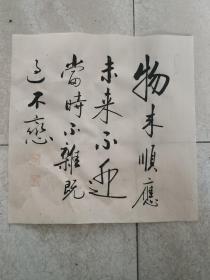 物来順應
未来不迎
當時不雜既
过不戀